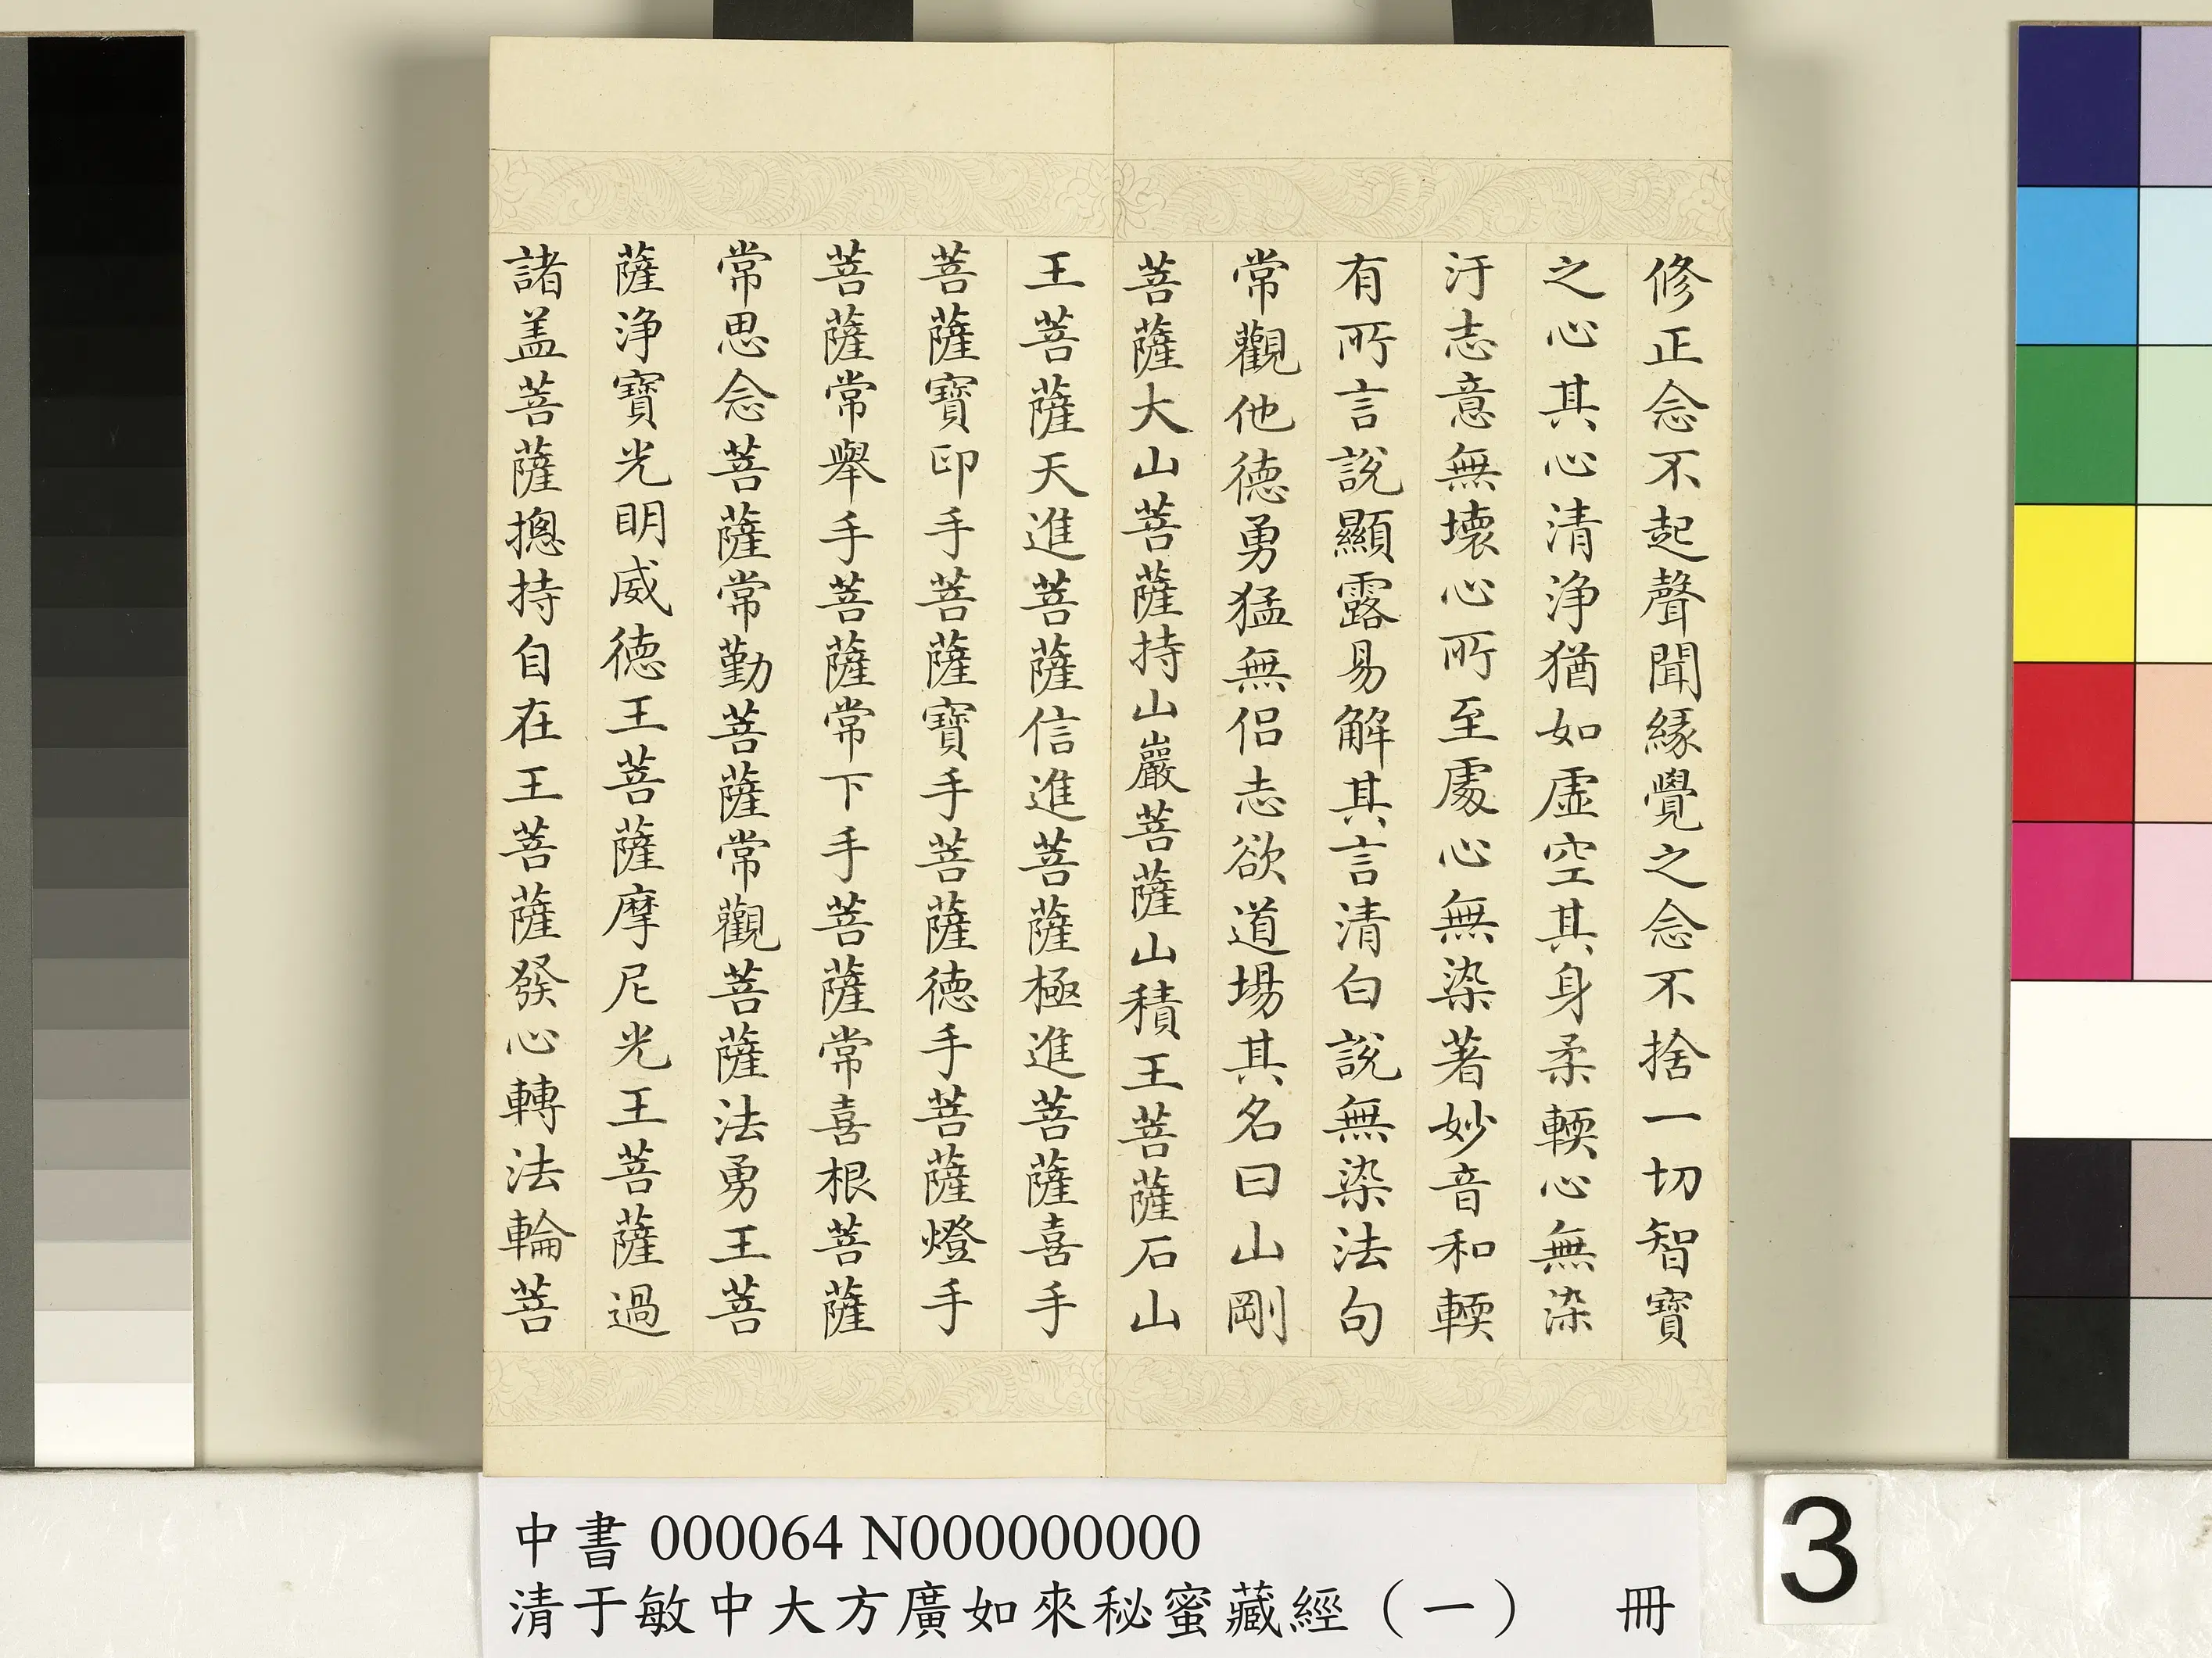 修正念不起聲聞緣覺之念不捨一切智寶
之心其心清淨猶如虛空其身柔輭心無染
汙志意無壞心所至處心無染著妙音和輭
有所言說顯露易解其言清白說無染法句
常觀他德勇猛無侶志欲道場其名曰山剛
菩薩大山菩薩持山巖菩薩山積王菩薩石山
王菩薩天進菩薩信進菩薩極進菩薩喜手
菩薩寶印手菩薩寶手菩薩德手菩薩燈手
菩薩常舉手菩薩常下手菩薩常喜根菩薩
常思念菩薩常勤菩薩常觀菩薩法勇王菩
薩淨寶光明威德王菩薩摩尼光王菩薩過
諸盖菩薩摠持自在王菩薩發心轉法輪菩
中書 000064 N000000000
清于敏中大方廣如來秘蜜藏經（一） 冊
3